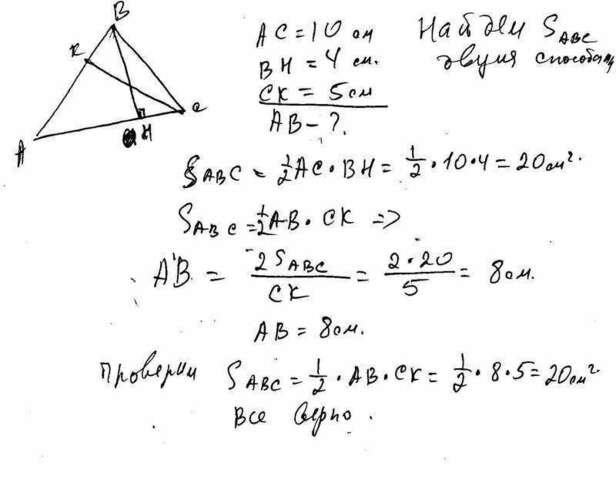 B
K
C
H
A
AC = 10 см
BH = 4 см.
CK = 5 см
AB - ?.
Найдем S_ABC
двумя способами
S_ABC = 1/2 AC · BH = 1/2 · 10 · 4 = 20 см².
S_ABC = 1/2 AB · CK =>
AB = 2S_ABC / CK = 2 · 20 / 5 = 8 см.
AB = 8 см.
Проверки S_ABC = 1/2 · AB · CK = 1/2 · 8 · 5 = 20 см²
Все верно.